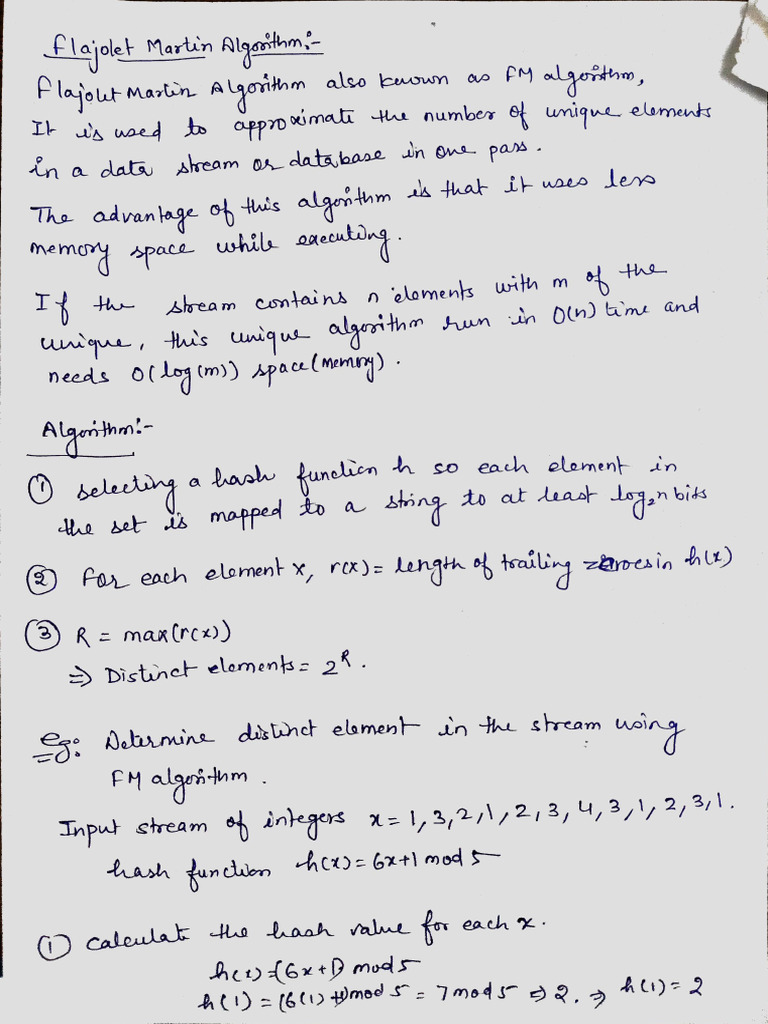 Flajolet Martin Algorithm:-
Flajolet Martin Algorithm also known as FM algorithm,
It is used to approximate the number of unique elements
in a data stream or database in one pass.
The advantage of this algorithm is that it uses less
memory space while executing.
If the stream contains n elements with m of the
unique, this unique algorithm run in O(n) time and
needs O(log(m)) space(memory).
Algorithm:-
① selecting a hash function h so each element in
the set is mapped to a string to at least log₂n bits
② For each element x, r(x) = length of trailing zeroes in h(x)
③ R = max(r(x))
⇒ Distinct elements = 2ᴿ.
Eg: Determine distinct element in the stream using
FM algorithm.
Input stream of integers x = 1, 3, 2, 1, 2, 3, 4, 3, 1, 2, 3, 1.
hash function h(x) = 6x+1 mod 5
① calculate the hash value for each x.
h(x) = (6x+1) mod 5
h(1) = (6(1)+1) mod 5 = 7 mod 5 ⇒ 2. ⇒ h(1) = 2